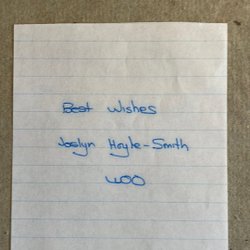 Best Wishes
Joslyn Hoyte-Smith
400